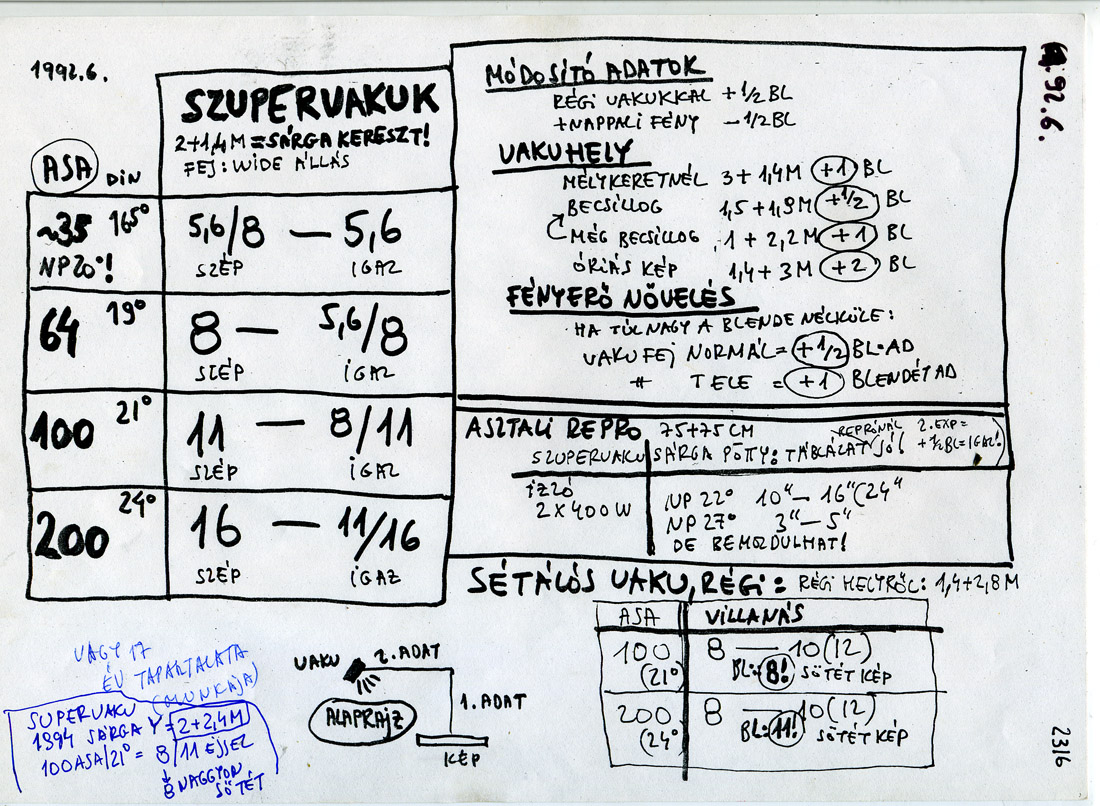 1992.6.
SZUPERVAKUK
2+1,4M=SÁRGA KERESZT!
FEJ: WIDE ÁLLÁS
ASA DIN
~35 165° 5,6/8 — 5,6
NP20°! SZÉP IGAZ
64 19° 8 — 5,6/8
SZÉP IGAZ
100 21° 11 — 8/11
SZÉP IGAZ
200 24° 16 — 11/16
SZÉP IGAZ
92.6.
MÓDOSÍTÓ ADATOK
RÉGI VAKUKKAL +1/2 BL
+NAPPALI FÉNY —1/2BL
VAKUHELY
MÉLYKERETNÉL 3+1,4M +1 BL
BECSILLOG 1,5+1,9M +1/2 BL
MÉG BECSILLOG 1+2,2M +1 BL
ÓRIÁS KÉP 1,4+3M +2 BL
FÉNYERŐ NÖVELÉS
HA TÚL NAGY A BLENDE NÉLKÜLE:
VAKUFEJ NORMÁL=+1/2 BL.AD
〃 TELE = +1 BLENDÉT AD
ASZTALI REPRO 75+75CM REPRÓNÁL 2.EXP=
SZUPERVAKU SÁRGA PÖTTY: TÁBLÁZAT JÓ! +1/2BL=IGAZ!
IZZÓ
2X400W
NP 22° 10"—16"(24"
NP 27° 3"—5"
DE BEMOZDULHAT!
SÉTÁLÓS VAKU, RÉGI: RÉGI HELYRŐL: 1,4+2,8M
ASA VILLANÁS
100 8 — 10(12)
(21°) BL:8! SÖTÉT KÉP
200 8 — 10(12)
(24°) BL:11! SÖTÉT KÉP
VAKU 2. ADAT
ALAPRAJZ 1. ADAT
KÉP
VAGY 17
ÉV TAPASZTALATA
(MUNKÁJA)
SUPERVAKU
1994 SÁRGA Y=2+2,4M
100ASA/21°= 8/11 ÉJJEL
↓
8 NAGGYON
SÖTÉT
23/6